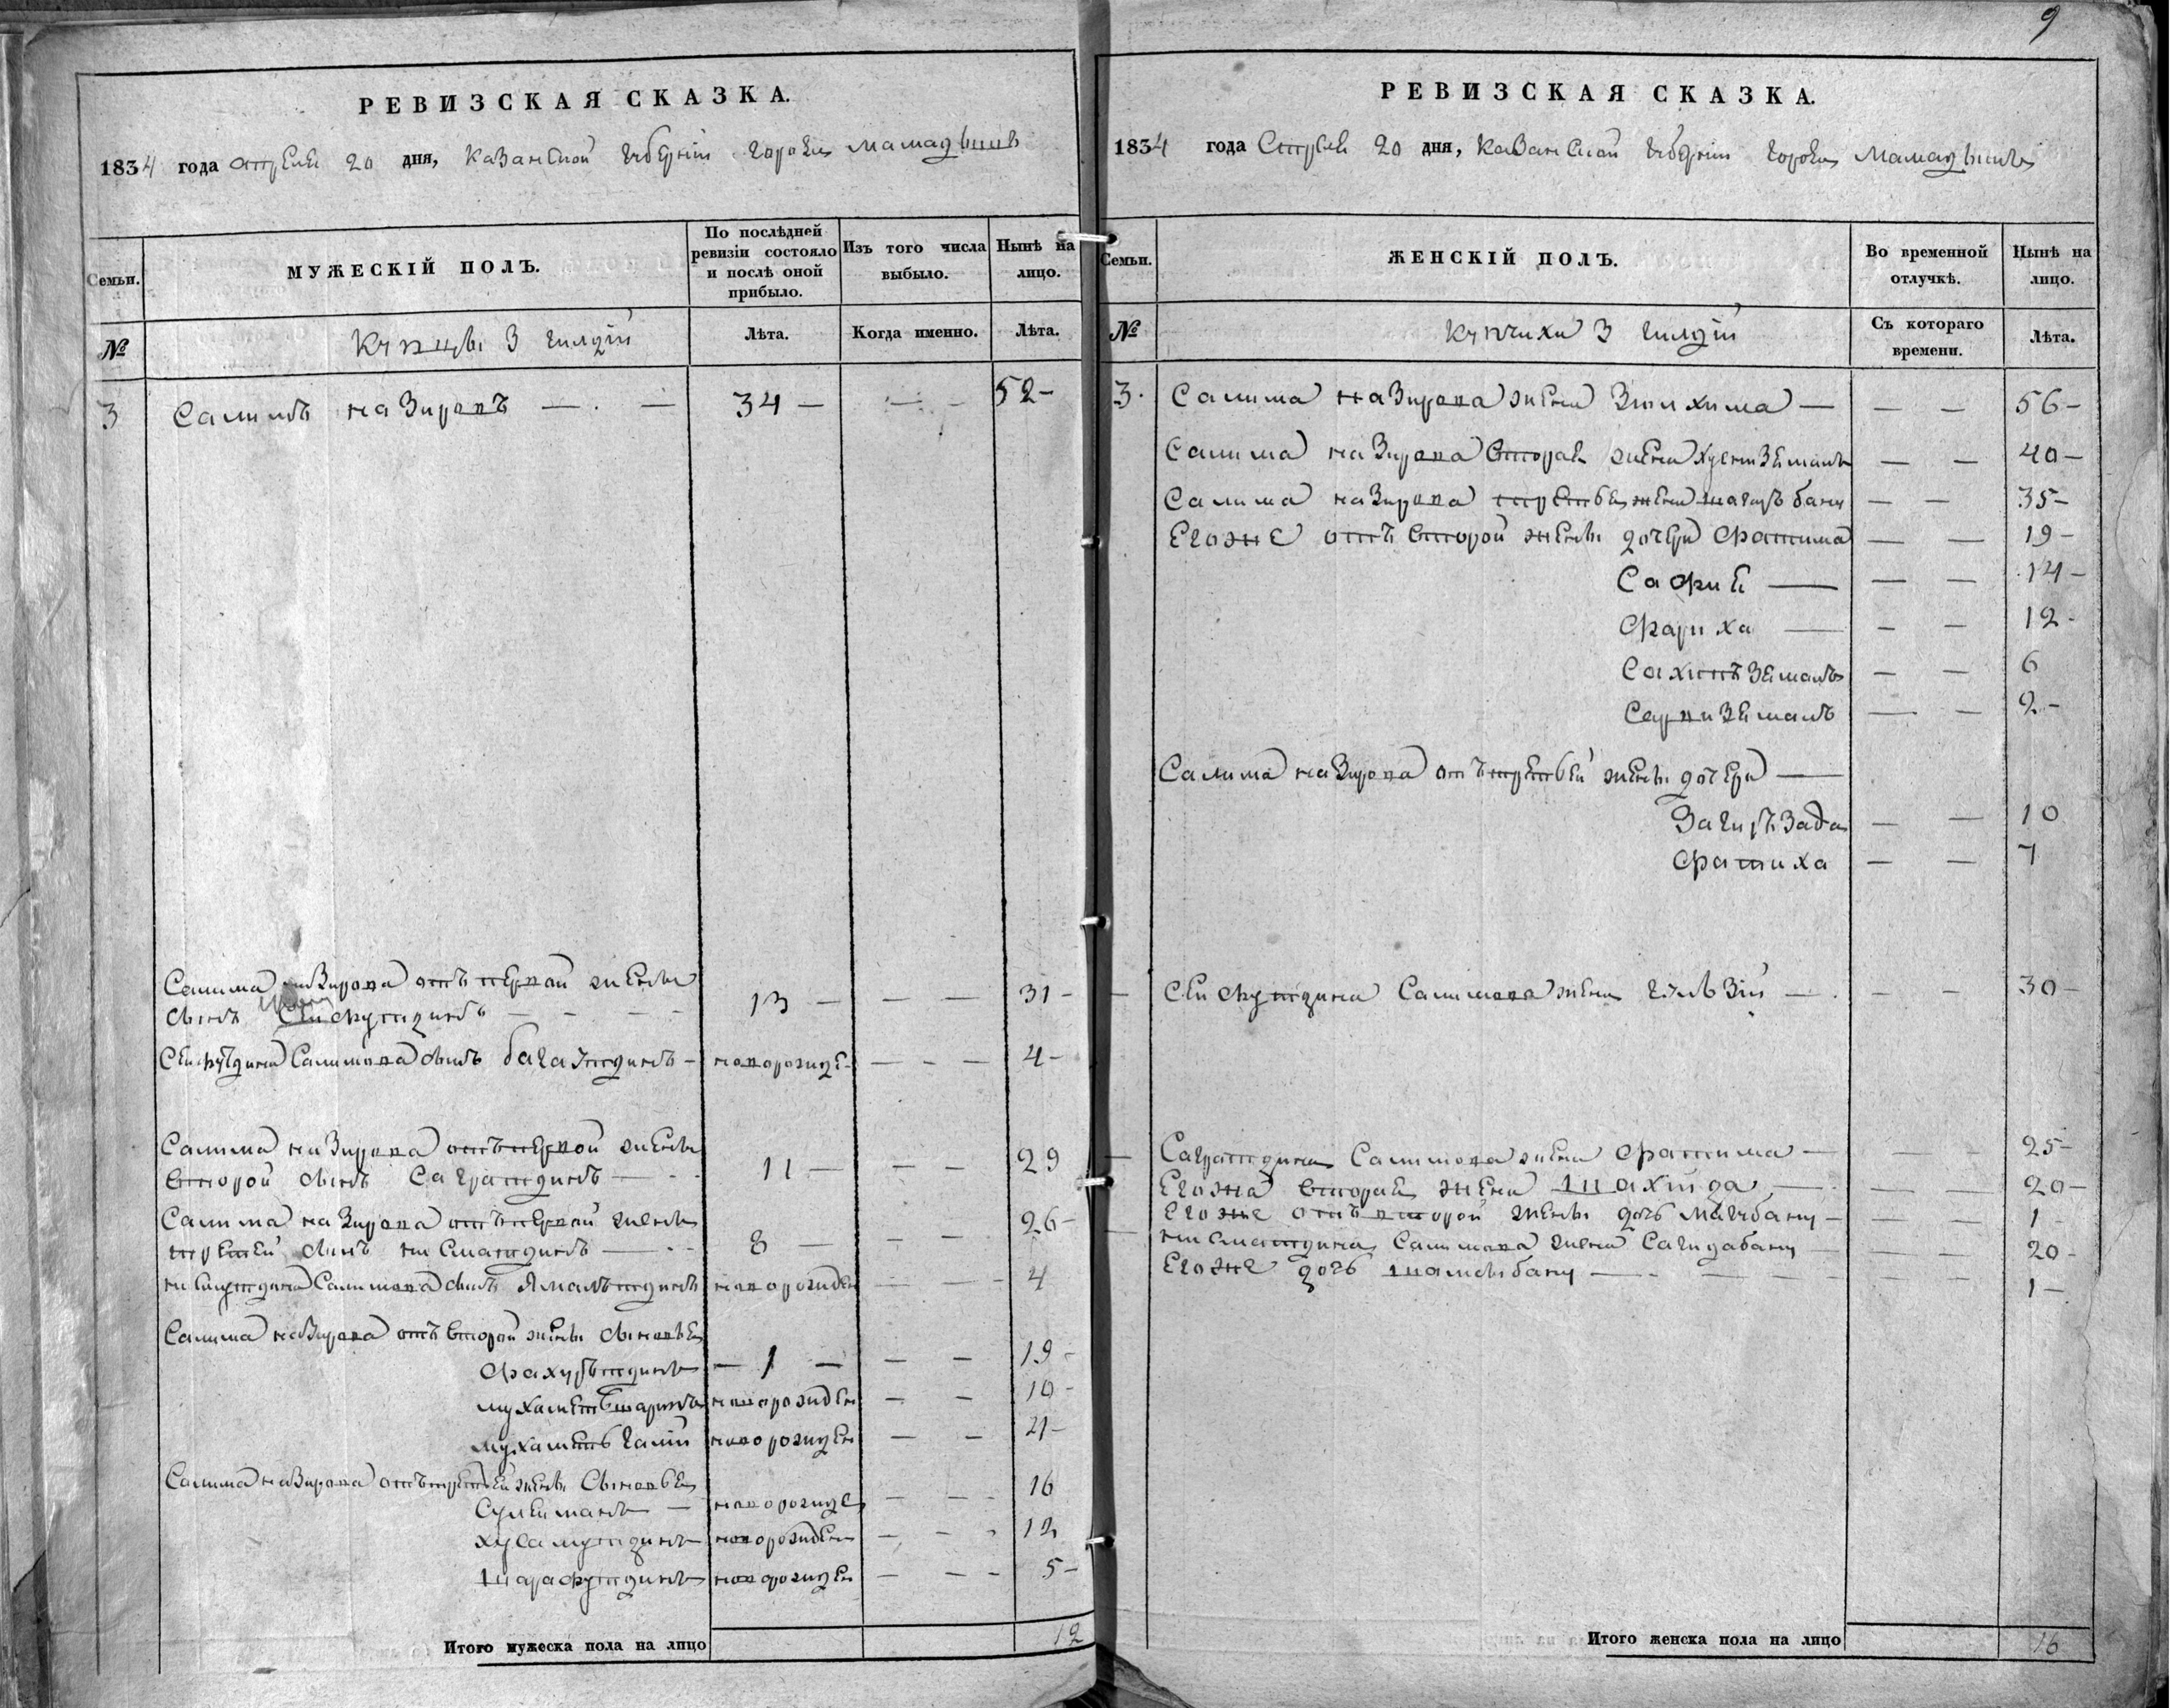 9
РЕВИЗСКАЯ СКАЗКА.
1834 года апреля 20 дня, Казанской губернiи города Мамадыша
Семьи.
МУЖЕСКIЙ ПОЛЪ.
По послѣдней ревизiи состояло и послѣ оной прибыло.
Изъ того числа выбыло.
Нынѣ на лицо.
№
Купцы 3 гилдiи
Лѣта.
Когда именно.
Лѣта.
3 Салимъ Назировъ — . — 34 — — — 52 —
Салима Назирова отъ первой жены
сынъ Сейфутдинъ — — — 13 — — — 31 —
Сейфутдина Салимова сынъ Багаутдинъ — новорожде — — — 4 —
Салима Назирова отъ первой жены
второй сынъ Сагратдинъ — 11 — — — 29
Салима Назирова отъ первой жены
третей сынъ — 8 — — — 26 —
Салимова сынъ Ямалътдинъ новорожден — — — 4
Салима Назирова отъ второй жены сыновья
Фахурътдинъ — 1 — — — 19 —
новорожден — — 10 —
Мухаметь Галiй новорожден — —
Салима Назирова отъ третьей жены сыновья
Сулейманъ — новорожде — — — 16
Хусамутдинъ новорожден — — — 12
Шарафутдинъ новорожден — — — 5 —
Итого мужеска пола на лицо 12
РЕВИЗСКАЯ СКАЗКА.
1834 года Апреля 20 дня, Казанской губернiи города Мамадыша
Семьи.
ЖЕНСКIЙ ПОЛЪ.
Во временной отлучкѣ.
Нынѣ на лицо.
№
Купчихи 3 гилдiи
Съ котораго времени.
Лѣта.
3. Салима Назирова жена — — — 56 —
Салима Назирова вторая жена — — 40 —
Салима Назирова третья жена бану — — 35 —
Егоже отъ второй жены дочери Фатима — — 19 —
Сафия — — — 14 —
Фариха — — — 12 —
— — 6
— — 2 —
Салима Назирова отъ третьей жены дочери —
Загиръзада — — 10
Фатиха — — 7
— Сейфутдина Салимова жена Гульзiй — . — — 30 —
— Сагратдина Салимова жена Фатима — — — 25 —
Егожа вторая жена Шахiйда — — — 20 —
Егоже отъ второй жены дочь Магибану — — — 1 —
— Салимова жена Сагидабану — — — 20 —
Егоже дочь Шамсыбану — — — 1 —
Итого женска пола на лицо 16